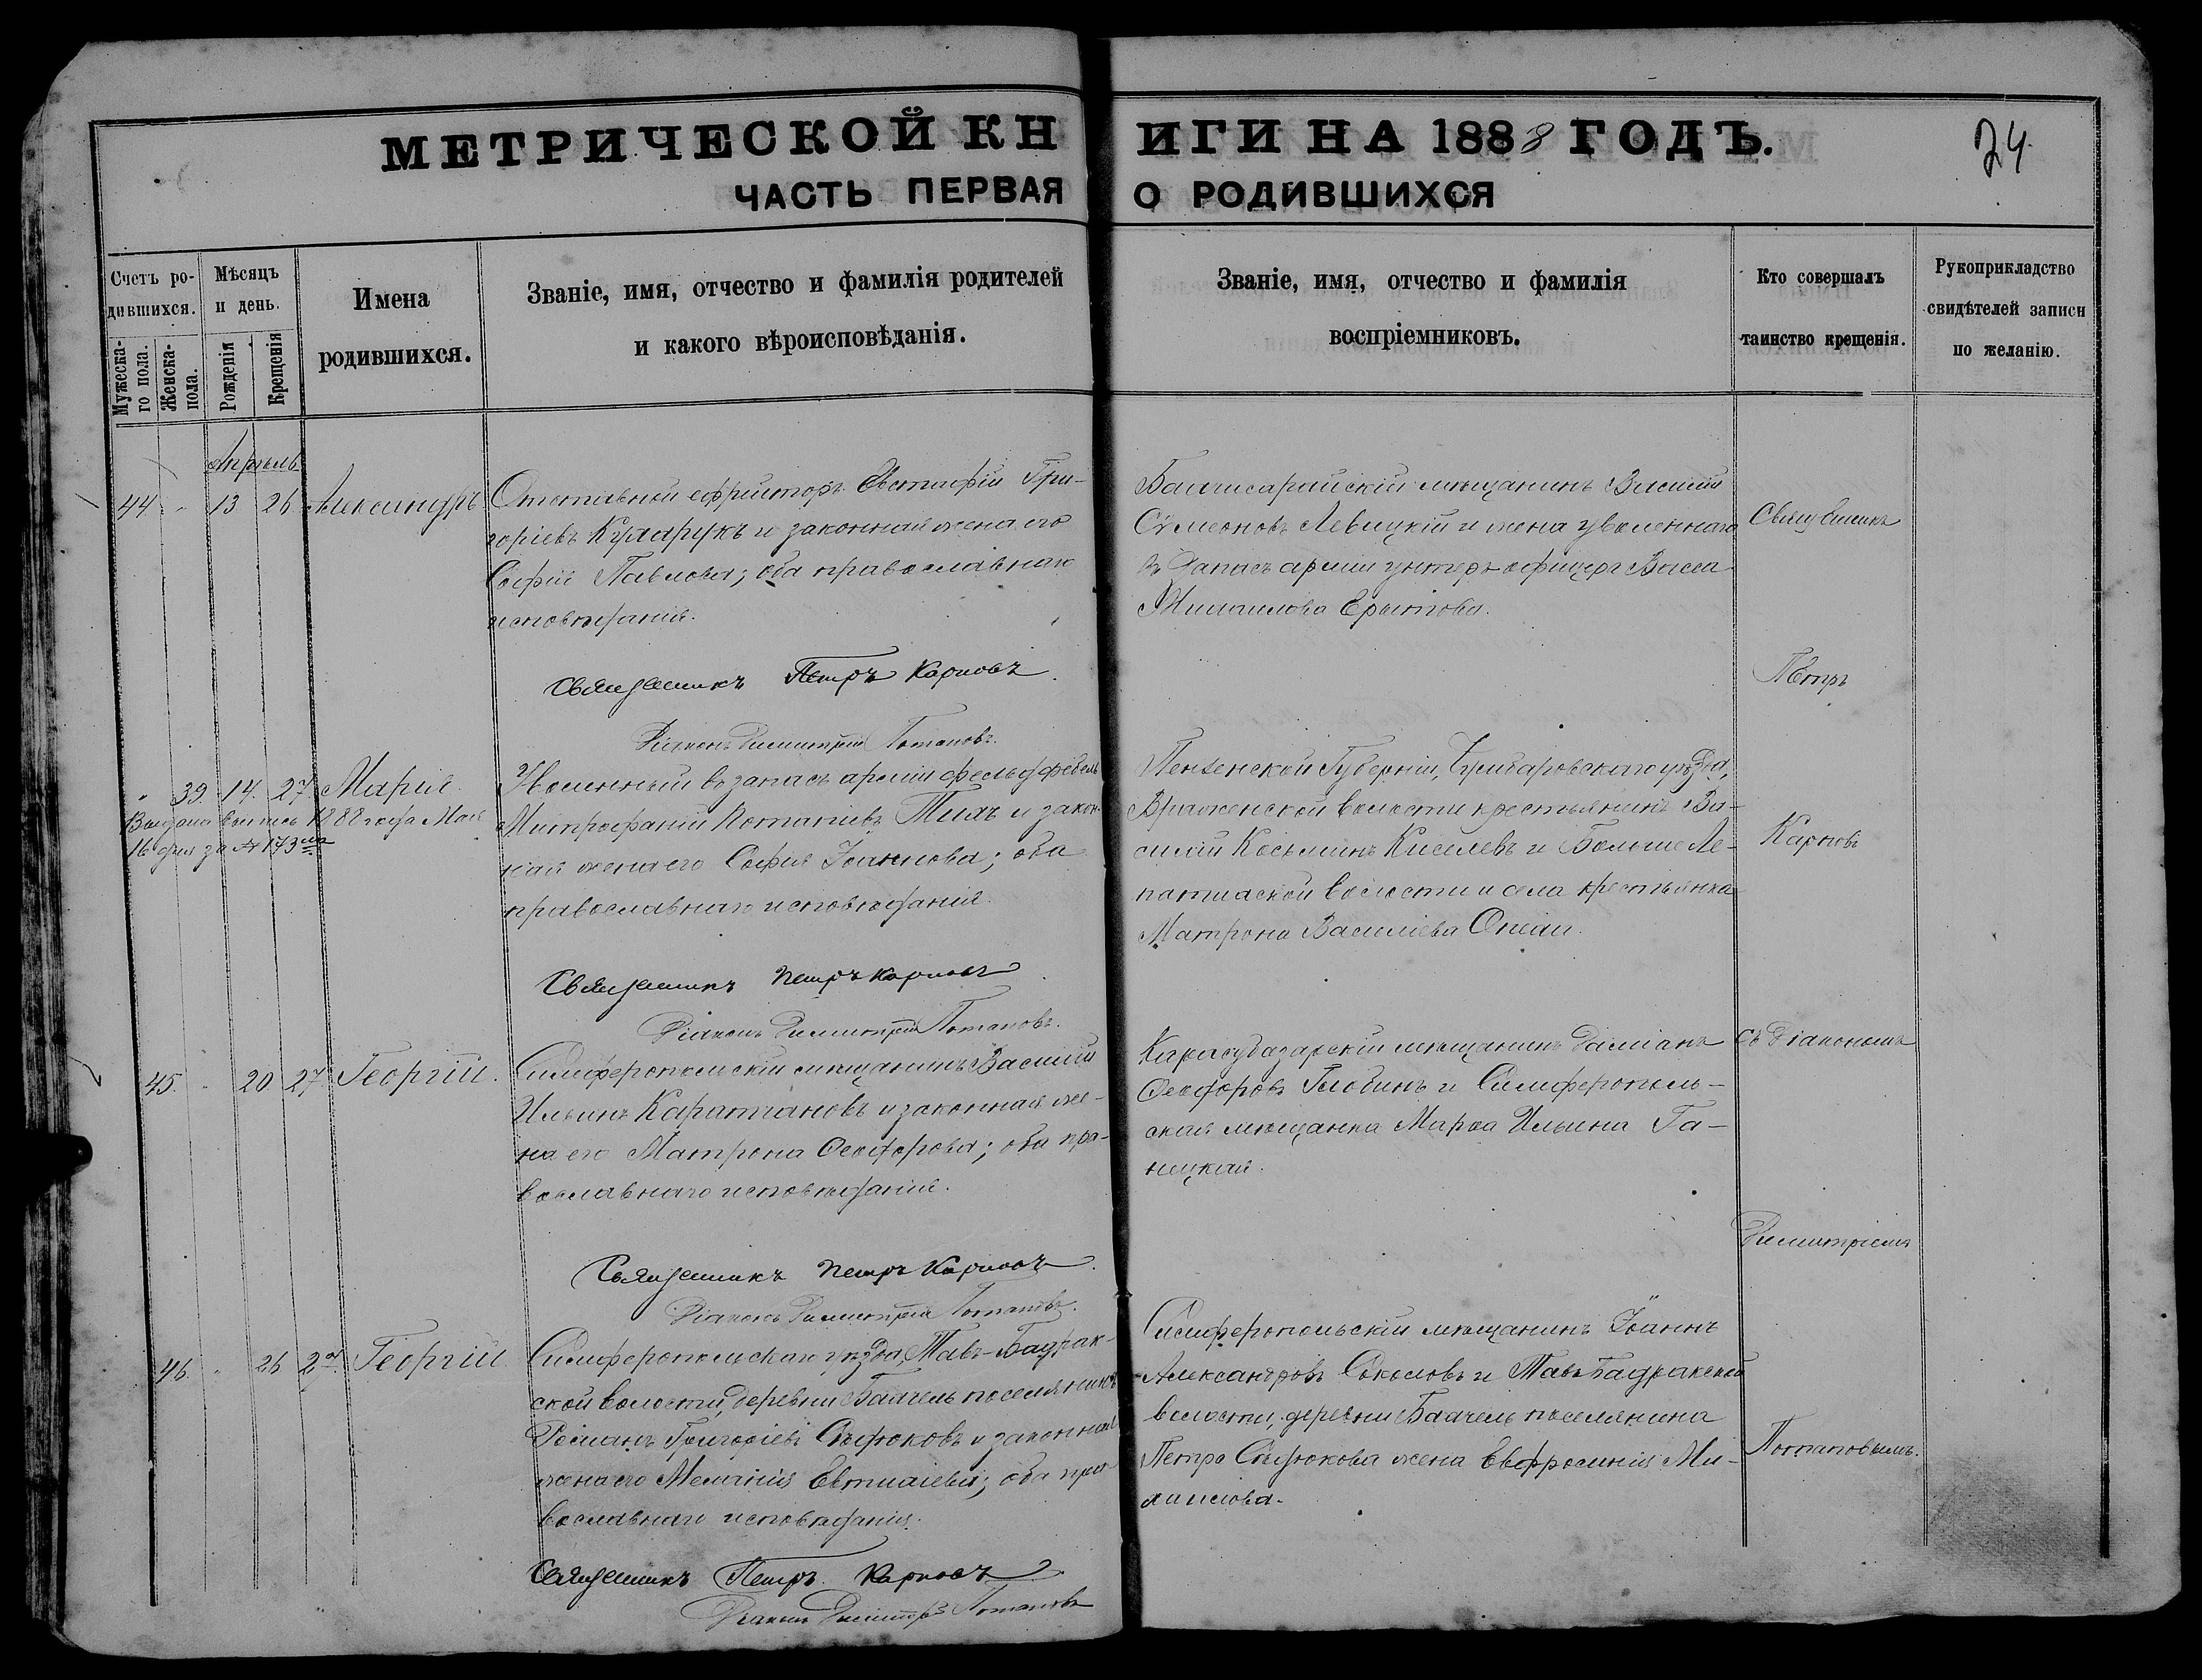 МЕТРИЧЕСКОЙ КНИГИ НА 1888 ГОДЪ.
24.
ЧАСТЬ ПЕРВАЯ О РОДИВШИХСЯ
Счетъ ро-
дившихся.
Мужеска-
го пола.
Женска-
пола.
Мѣсяцъ
и день.
Рожденія
Крещенія
Имена
родившихся.
Званіе, имя, отчество и фамилія родителей
и какого вѣроисповѣданія.
Званіе, имя, отчество и фамилія
воспріемниковъ.
Кто совершалъ
таинство крещенія.
Рукоприкладство
свидѣтелей записи
по желанію.
Апрѣль
44 13 26 Александръ
Отставной ефрейторъ Евстафій Гри-
горіевъ и законная жена его
Софія Павлова; оба православнаго
исповѣданія.
Священникъ Петръ Карповъ
Діаконъ Димитрій Потаповъ.
Бахчисарайскій мѣщанинъ Василій
Сѵмеоновъ Левицкій и жена уволеннаго
въ запасъ арміи унтеръ-офицера Васса
Михаилова
39. 14. 27. Марія
Выдана выпись 1888 года Мая
16 дня за № 173
Уволенный въ запасъ арміи фельдфебель
Митрофаній Потапіевъ и закон-
ная жена его Софія Іоаннова; оба
православнаго исповѣданія.
Священникъ Петръ Карповъ
Діаконъ Димитрій Потаповъ.
Пензенской Губерніи, уѣзда,
волости крестьянинъ Ва-
силій Косьминъ Киселевъ и Больше Ле-
волости и села крестьянка
Матрона Василіева
45. 20 27 Георгій.
Симферопольскій мѣщанинъ Василій
Ильинъ и законная же-
на его Матрона Ѳеодорова; оба пра-
вославнаго исповѣданія.
Священникъ Петръ Карповъ
Діаконъ Димитрій Потаповъ.
Карасубазарскій мѣщанинъ Даміанъ
Ѳеодоровъ Глобинъ и Симферополь-
ская мѣщанка Марѳа Ильина Га-
нецкая.
46. 26 27 Георгій
Симферопольскаго уѣзда, Тавъ-Бадрак-
ской волости, деревни поселянинъ
Григоріевъ и законная
жена его Меланія Евтихіева; оба пра-
вославнаго исповѣданія.
Священникъ Петръ Карповъ
Діаконъ Димитрій Потаповъ
Симферопольскій мѣщанинъ Іоаннъ
Александровъ Соколовъ и Тавъ-Бадракской
волости, деревни поселянина
Петра жена Евфросинія Ми-
хаилова.
Священникъ
Петръ
Карповъ
съ Діакономъ
Димитріемъ
Потаповымъ.